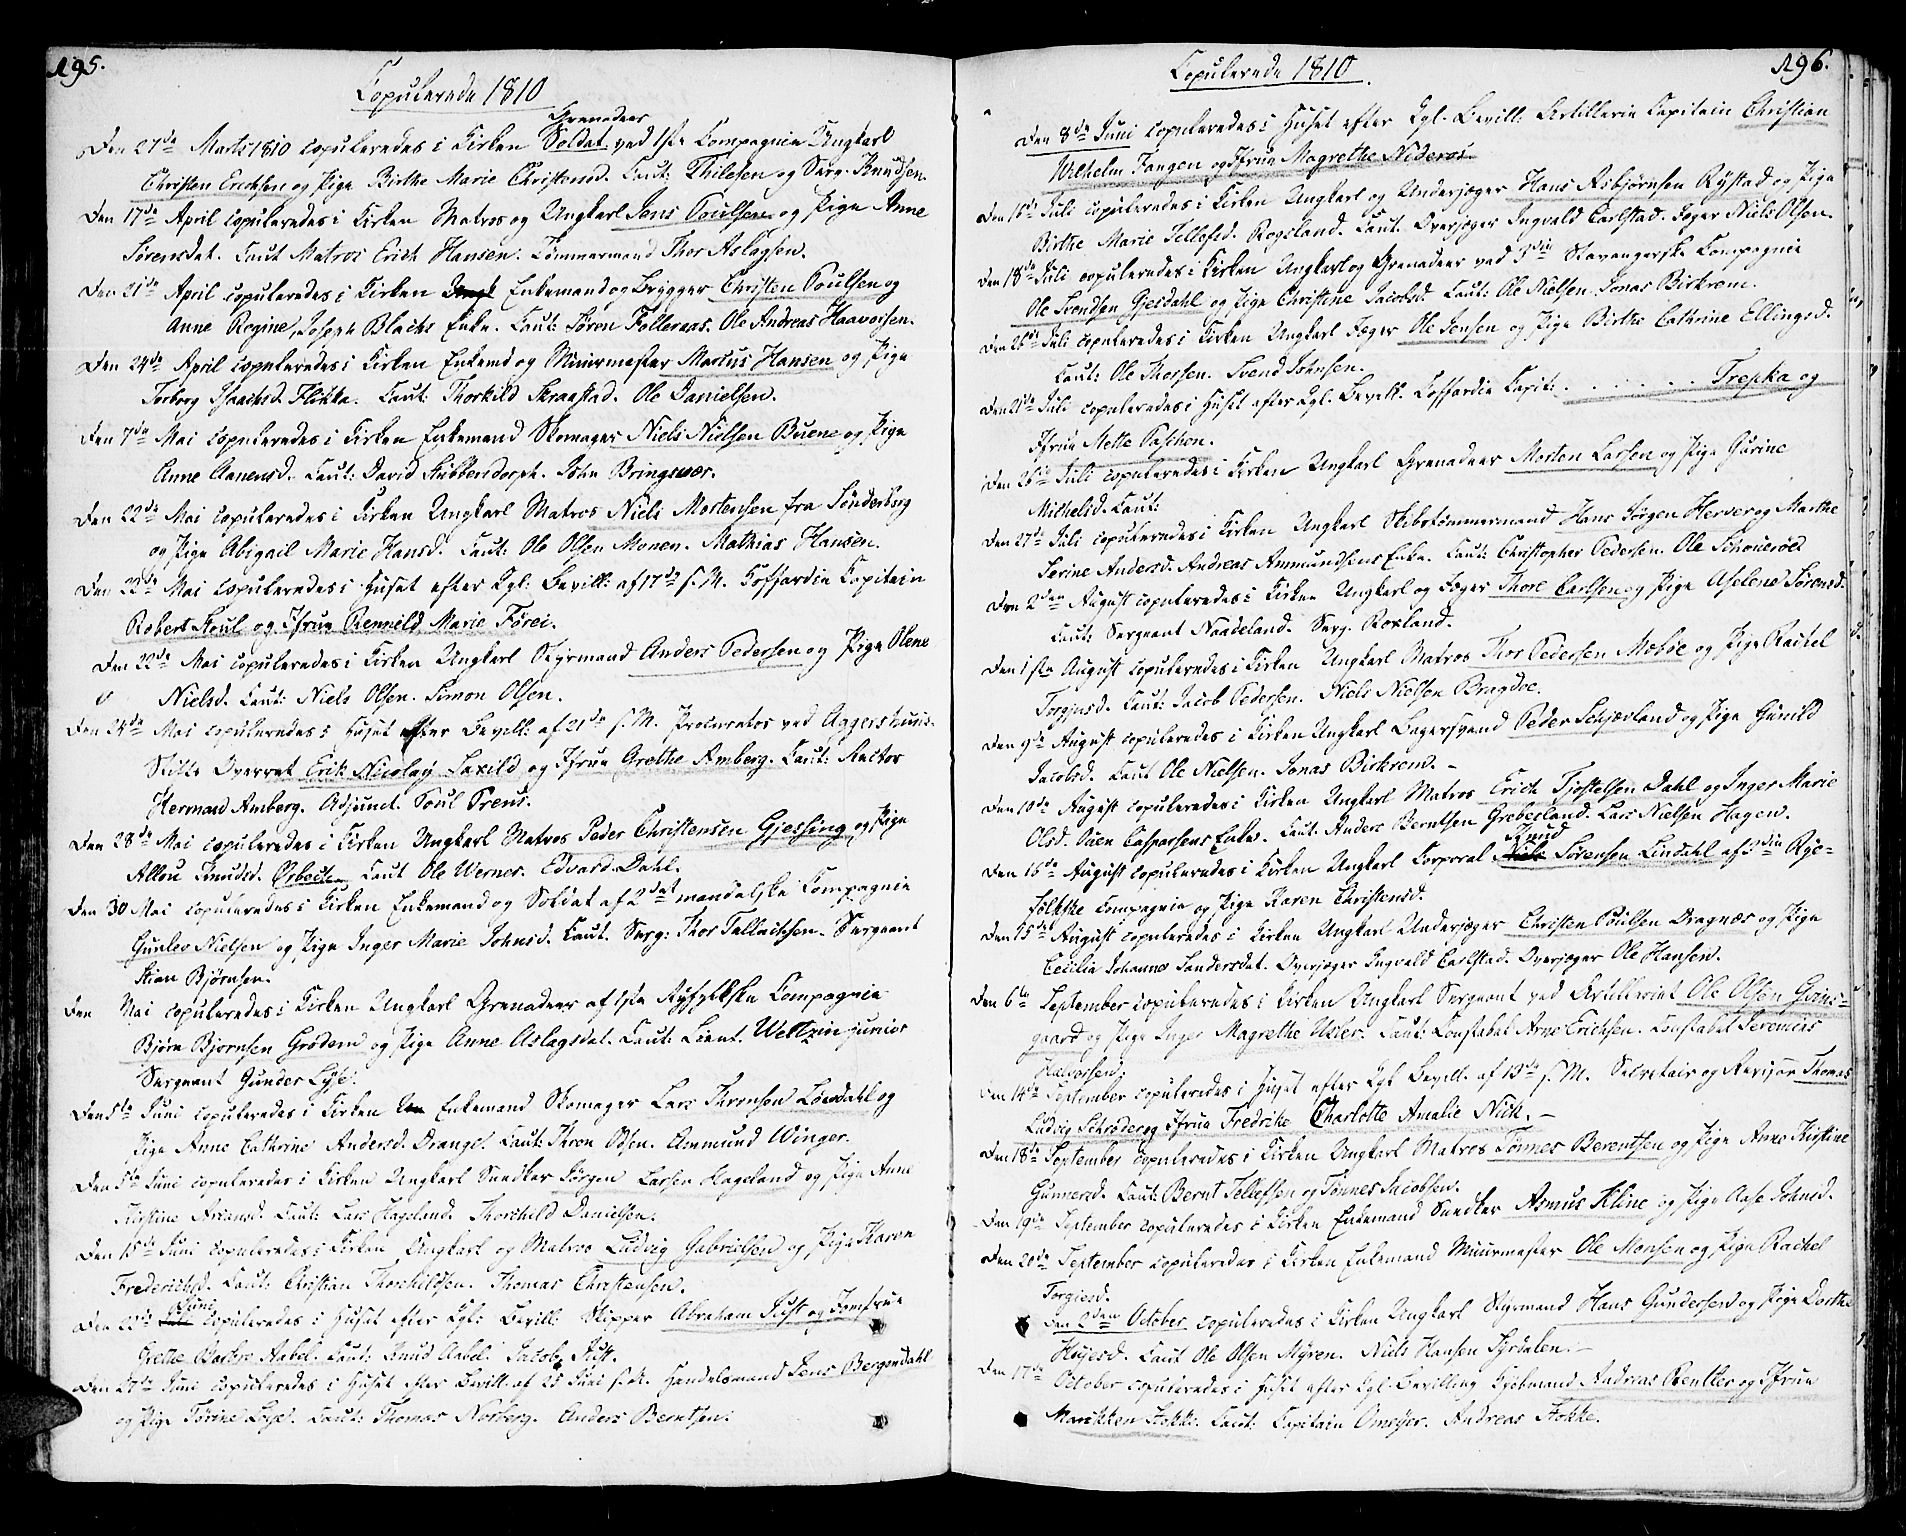 195.
Copulerede 1810
Grenadeer
Den 27de Marts 1810 copuleredes i Kirken Soldat ved 1ste Compagnie Ungkarl
Christen Erichsen og Pige Birthe Marie Christensd. Caut: Thilesen og Serg. Knudsen.
Den 17de April copuleredes i Kirken Matros og Ungkarl Jens Poulsen og Pige Anne
Sørensdat. Caut Matros Erich Hansen. Tømmermand Thor Aslagsen.
Den 21de April copuleredes i Kirken Ungk Enkemand og Brygger Christen Poulsen og
Anne Regine, Joseph Blachs Enke. Caut: Søren Falleraas. Ole Andreas Haavorsen.
Den 24de April copuleredes i Kirken Enkemd og Muurmester Marcus Hansen og Pige
Torborg Isaachsd. Flikka. Caut: Thorkild Skraastad. Ole Danielsen.
Den 7de Mai copuleredes i Kirken Enkemand Skomager Niels Nielsen Buene og Pige
Anne Aanensd. Caut: David Stubbendorph. John Bringsvær.
Den 22de Mai copuleredes i Kirken Ungkarl Matros Niels Mortensen fra Sønderborg
og Pige Abigail Marie Hansd. Caut: Ole Olsen Monen. Mathias Hansen.
Den 22de Mai copuleredes i Huset efter Kgl: Bevill: af 17de s. M. Coffardie Capitain
Robert Stoul og Jfrue Renneld Marie Førei.
Den 22de Mai copuleredes i Kirken Ungkarl Styrmand Anders Pedersen og Pige Olene
Nielsd. Caut: Niels Olsen. Simon Olsen.
Den 24de Mai copuleredes i Huset efter Bevill: af 21de s. M. Procurator ved Aggershuus
Stifts Overret Erik Nicolay Saxild og Jfrue Grethe Amberg. Caut: Rector
Herman Amberg. Adjunct Poul Preus.
Den 28de Mai copuleredes i Kirken Ungkarl Matros Peder Christensen Gjessing og Pige
Allou Knudsd. Orbech. Caut Ole Werner. Edvard Dahl.
Den 30 Mai copuleredes i Kirken Enkemand og Soldat af 2det mandalske Compagnie
Gunlev Nielsen og Pige Inger Marie Johnsd. Caut. Serg: Thor Tallachsen. Sergeant
Stian Bjørnsen.
Den Mai copuleredes i Kirken Ungkarl Grenadeer af 1ste Ryfylkske Compagnie
Bjørn Bjornsen Grødem og Pige Anne Aslagsdat. Caut: Lieut. Weltzin junior
Sergeant Gunder Lyse.
Den 5te Juni copuleredes i Kirken Enkemand Skomager Lars Thronsen Løvdahl og
Pige Anne Cathrine Andersd. Drange. Caut: Thron Olsen. Ammund Winger.
Den 5te Juni copuleredes i Kirken Ungkarl Snedker Jørgen Larsen Hageland og Pige Anne
Kirstine Ariansd. Caut: Lars Hageland. Thorchild Danielsen.
Den 15de Juni copuleredes i Kirken Ungkarl og Matros Ludvig Gabrielsen og Pige Karen
Frederichsd. Caut: Christian Thorchildsen. Thomas Christensen.
Juni
Den 22de copuleredes i Huset efter Kgl: Bevill: Skipper Abraham Just og Jomfrue
Grethe Aabel. Caut: Knud Aabel. Jacob Just.
Den 27de Juni copuleredes i Huset efter Bevill. af 25 Juni s. A. Handelsmand Jens Bergendahl
og Pige Tørine Lysd. Caut: Thomas Norberg. Anders Berntsen.
196.
Copulerede 1810
Den 8de Juni copuleredes i Huset efter Kgl. Bevill: Artillerie Capitain Christian
Wilhelm Tangen og Jfrue Magrethe Nideros.
Den 16de Juli copuleredes i Kirken Ungkarl og Underjæger Hans Asbjørnsen Rystad og Pige
Birthe Marie Tellefsd. Rogsland. Caut. Overjæger Ingvald Carlstad. Jæger Niels Olsen.
Den 18de Juli copuleredes i Kirken Ungkarl og Grenadeer ved 3die Stavangerske Compagnie
Ole Svendsen Gjesdahl og Pige Christine Jacobsd. Caut: Ole Nielsen. Jonas Birkrem.
Den 26de Juli copuleredes i Kirken Ungkarl Jæger Ole Jensen og Pige Birthe Cathrine Ellingsd.
Caut: Ole Thorsen. Svend Johnsen.
Den 21de Juli copuleredes i Huset efter Kgl. Bevill: Coffardie Capit: . . . . . . Trepka og
Jfrue Mette Paschen.
Den 26de Juli copuleredes i Kirken Ungkarl Grenadeer Morten Larsen og Pige Gurine
Mikkelsd. Caut:
Den 27de Juli copuleredes i Kirken Ungkarl Skibstømmermand Hans Jørgen Herver og Marthe
Serine Andersd. Andreas Ammundsens Enke. Caut: Christopher Pedersen. Ole Schouerøe
Den 2den August copuleredes i Kirken Ungkarl og Jæger Thore Carlsen og Pige Aselene Sørensd.
Caut: Sergeant Naadeland. Serg. Roxland.
Den 1ste August copuleredes i Kirken Ungkarl Matros Thor Pedersen Mebøe og Pige Rachel
Torgusd. Caut: Jacob Pedersen. Niels Nielsen Bragdøe.
Den 9de August copuleredes i Kirken Ungkarl Bagersvend Peder Schjærland og Pige Gunild
Jacobsd. Caut Ole Nielsen. Jonas Birkrem. –
Den 10de August copuleredes i Kirken Ungkarl Matros Erich Tjostelsen Dahl og Inger Marie
Olsd. Caspersens Enke. Caut: Anders Berntsen Greberland. Lars Nielsen Hagen.
Knud
Den 16de August copuleredes i Kirken Ungkarl Corporal Niels Sørensen Lindahl af 2den Rye-
fölkske Compagnie og Pige Karen Christensd.
Den 15de August copuleredes i Kirken Ungkarl Underjæger Christen Poulsen Dragnæs og Pige
Cecilia Johanne Sandersdat. Overjæger Ingvald Carlstad. Overjæger Ole Hansen.
Den 6te September copuleredes i Kirken Ungkarl Sergeant ved Artilleriet Ole Olsen Grims-
gaard og Pige Inger Magrethe Usler. Caut: Constabel Arne Erichsen. Constabel Jeremias
Halvorsen.
Den 14de September copuleredes i Huset efter Kgl Bevill: af 13de s. M. Secretair og Revisor Thomas
Ludvig Schrøder og Jfrue Fredrike Charlotte Amalie Nick. –
Den 18de September copuleredes i Kirken Ungkarl Matros Tønnes Berentsen og Pige Anne Kirstine
Gunnersd. Caut: Bernt Tellefsen og Tønnes Jacobsen.
Den 19de September copuleredes i Kirken Enkemand Snedker Asmus Kline og Pige Aase Johnsd.
Den 20de September copuleredes i Kirken Enkemand Muurmester Ole Monsen og Pige Rachel
Torgiesd.
Den 2den October copuleredes i Kirken Ungkarl Styrmand Hans Gundersen og Pige Dorthe
Hoyesd. Caut Ole Olsen Myren. Niels Hansen Syrdalen. –
Den 17de October copuleredes i Huset efter Kgl: Bevilling Kjøbmand Andreas Rentler og Jfrue
Marikken Fokke. Caut: Capitain Omeyer. Andreas Fokke.